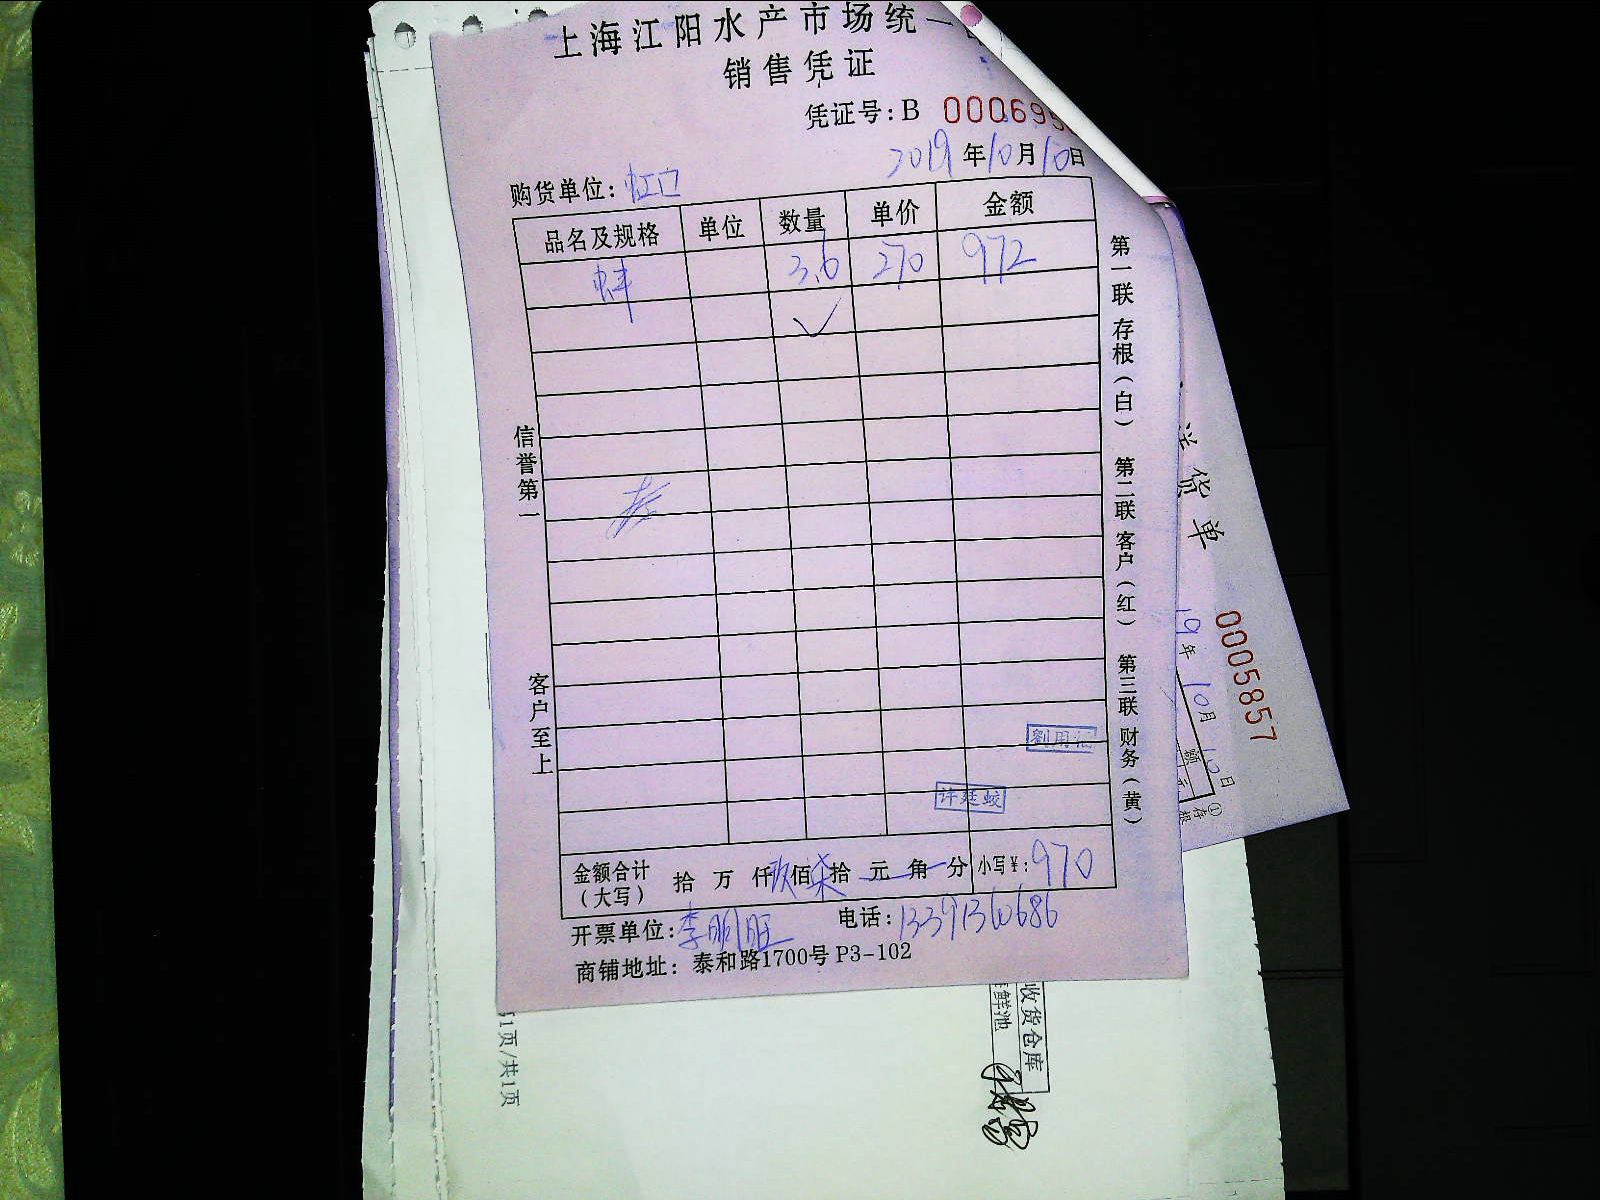 上海江阳水产市场统一
销售凭证
凭证号：B 000695
2019年10月10日
购货单位：虹口
品名及规格 单位 数量 单价 金额
蚌 3.6 270 972
信誉第一
客户至上
第一联 存根（白） 第二联 客户（红） 第三联 财务（黄）
许廷蛟
金额合计（大写） 拾 万 仟 玖佰 柒拾 元 角 分 小写¥：970
开票单位： 电话：
商铺地址：泰和路1700号 P3-102
货单
0005857
19年10月12日
收货仓库
鲜池
1页/共1页